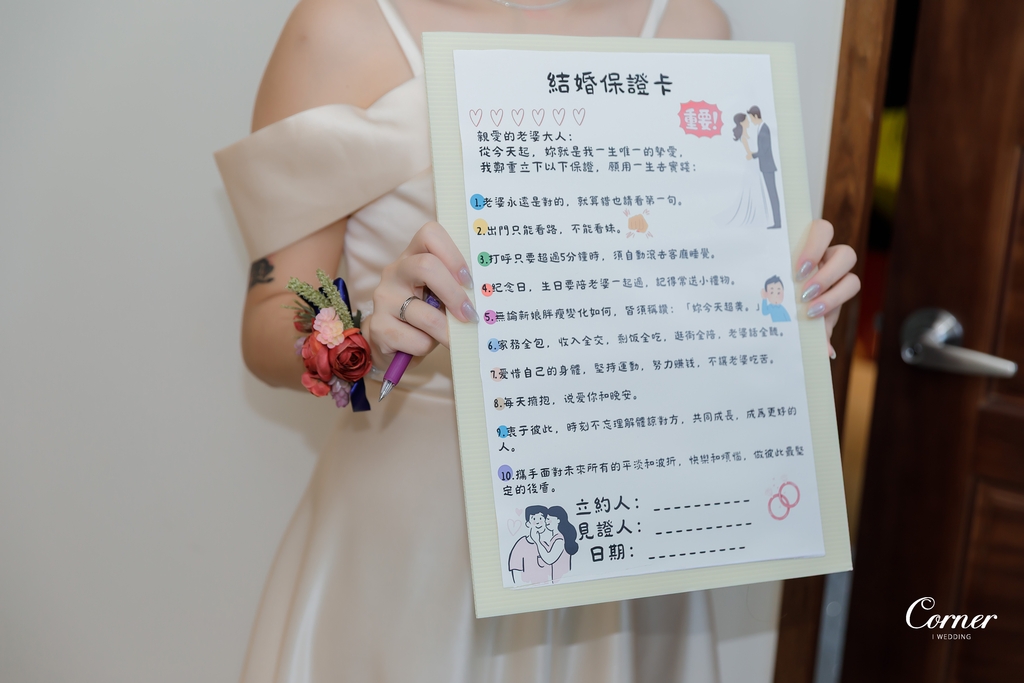 結婚保證卡
重要!
親愛的老婆大人：
從今天起，妳就是我一生唯一的摯愛，
我鄭重立下以下保證，願用一生去實踐：
1.老婆永遠是對的，就算錯也請看第一句。
2.出門只能看路，不能看妹。
3.打呼只要超過5分鐘時，須自動滾去客廳睡覺。
4.紀念日，生日要陪老婆一起過，記得常送小禮物。
5.無論新娘胖瘦變化如何，皆須稱讚：「妳今天超美。」
6.家務全包，收入全交，剩飯全吃，逛街全陪，老婆話全聽。
7.愛惜自己的身體，堅持運動，努力賺錢，不讓老婆吃苦。
8.每天擁抱，說愛你和晚安。
9.衷于彼此，時刻不忘理解體諒對方，共同成長，成為更好的
人。
10.攜手面對未來所有的平淡和波折，快樂和煩惱，做彼此最堅
定的後盾。
立約人：----------
見證人：----------
日期：----------
Corner
I WEDDING